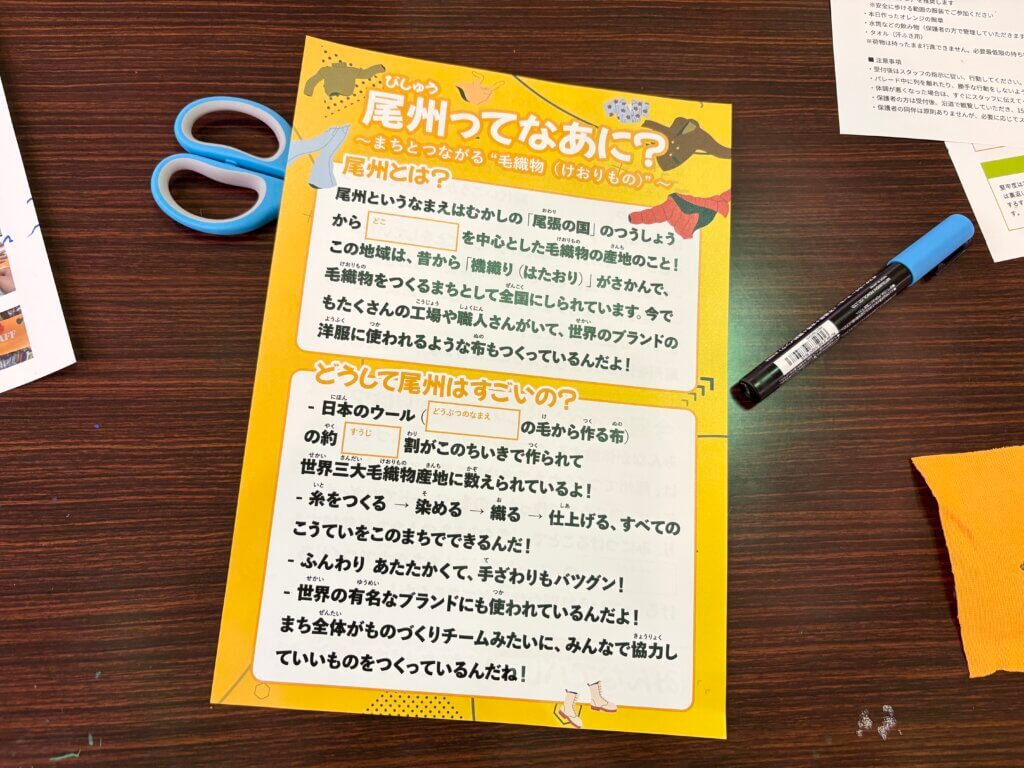 びしゅう
尾州ってなあに？
～まちとつながる“毛織物（けおりもの）”～
尾州とは？
尾州というなまえはむかしの「尾張の国」のつうしょう
おわり
から どこ を中心とした毛織物の産地のこと！
けおりもの さんち
この地域は、昔から「機織り（はたおり）」がさかんで、
けおりもの ぜんこく
毛織物をつくるまちとして全国にしられています。今で
こうじょう しょくにん せかい
もたくさんの工場や職人さんがいて、世界のブランドの
ようふく つか ぬの
洋服に使われるような布もつくっているんだよ！
どうして尾州はすごいの？
にほん け つく ぬの
- 日本のウール（ どうぶつのなまえ の毛から作る布）
やく わり つく
の約 すうじ 割がこのちいきで作られて
せかい さんだい けおりもの さんち かぞ
世界三大毛織物産地に数えられているよ！
いと そ お しあ
- 糸をつくる → 染める → 織る → 仕上げる、すべての
こうていをこのまちでできるんだ！
て
- ふんわり あたたかくて、手ざわりもバツグン！
せかい ゆうめい つか
- 世界の有名なブランドにも使われているんだよ！
ぜんたい きょうりょく
まち全体がものづくりチームみたいに、みんなで協力し
ていいものをつくっているんだね！
※安全に歩ける範囲の服装でご参加ください
・本日作ったオレンジの腕章
・水筒などの飲み物（保護者の方で管理していただきます
・タオル（汗ふき用）
※荷物は持ったまま行進できません。必要最低限の持ち
■ 注意事項
・受付後はスタッフの指示に従い、行動してください。
・パレード中に列を離れたり、勝手な行動をしないよう
・体調が悪くなった場合は、すぐにスタッフに伝えて
・保護者の方は受付後、沿道で観覧していただき、
・保護者の同伴は原則ありませんが、必要に応じてス